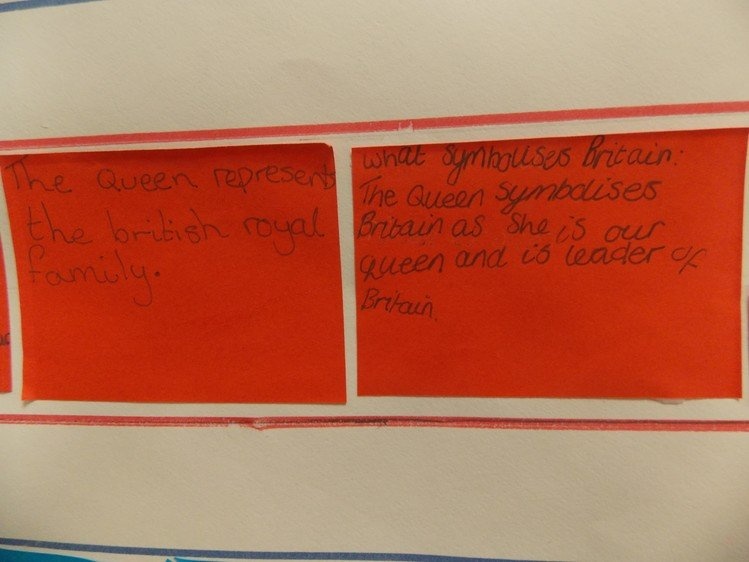 The Queen represents
the british royal
family.
what symbolises Britain:
The Queen symbolises
Britain as she is our
queen and is leader of
Britain.